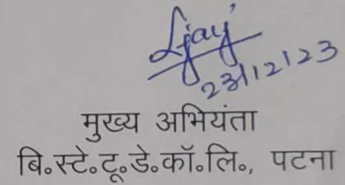 23/12/23
मुख्य अभियंता
बि॰स्टे॰टू॰डे॰कॉ॰लि॰, पटना